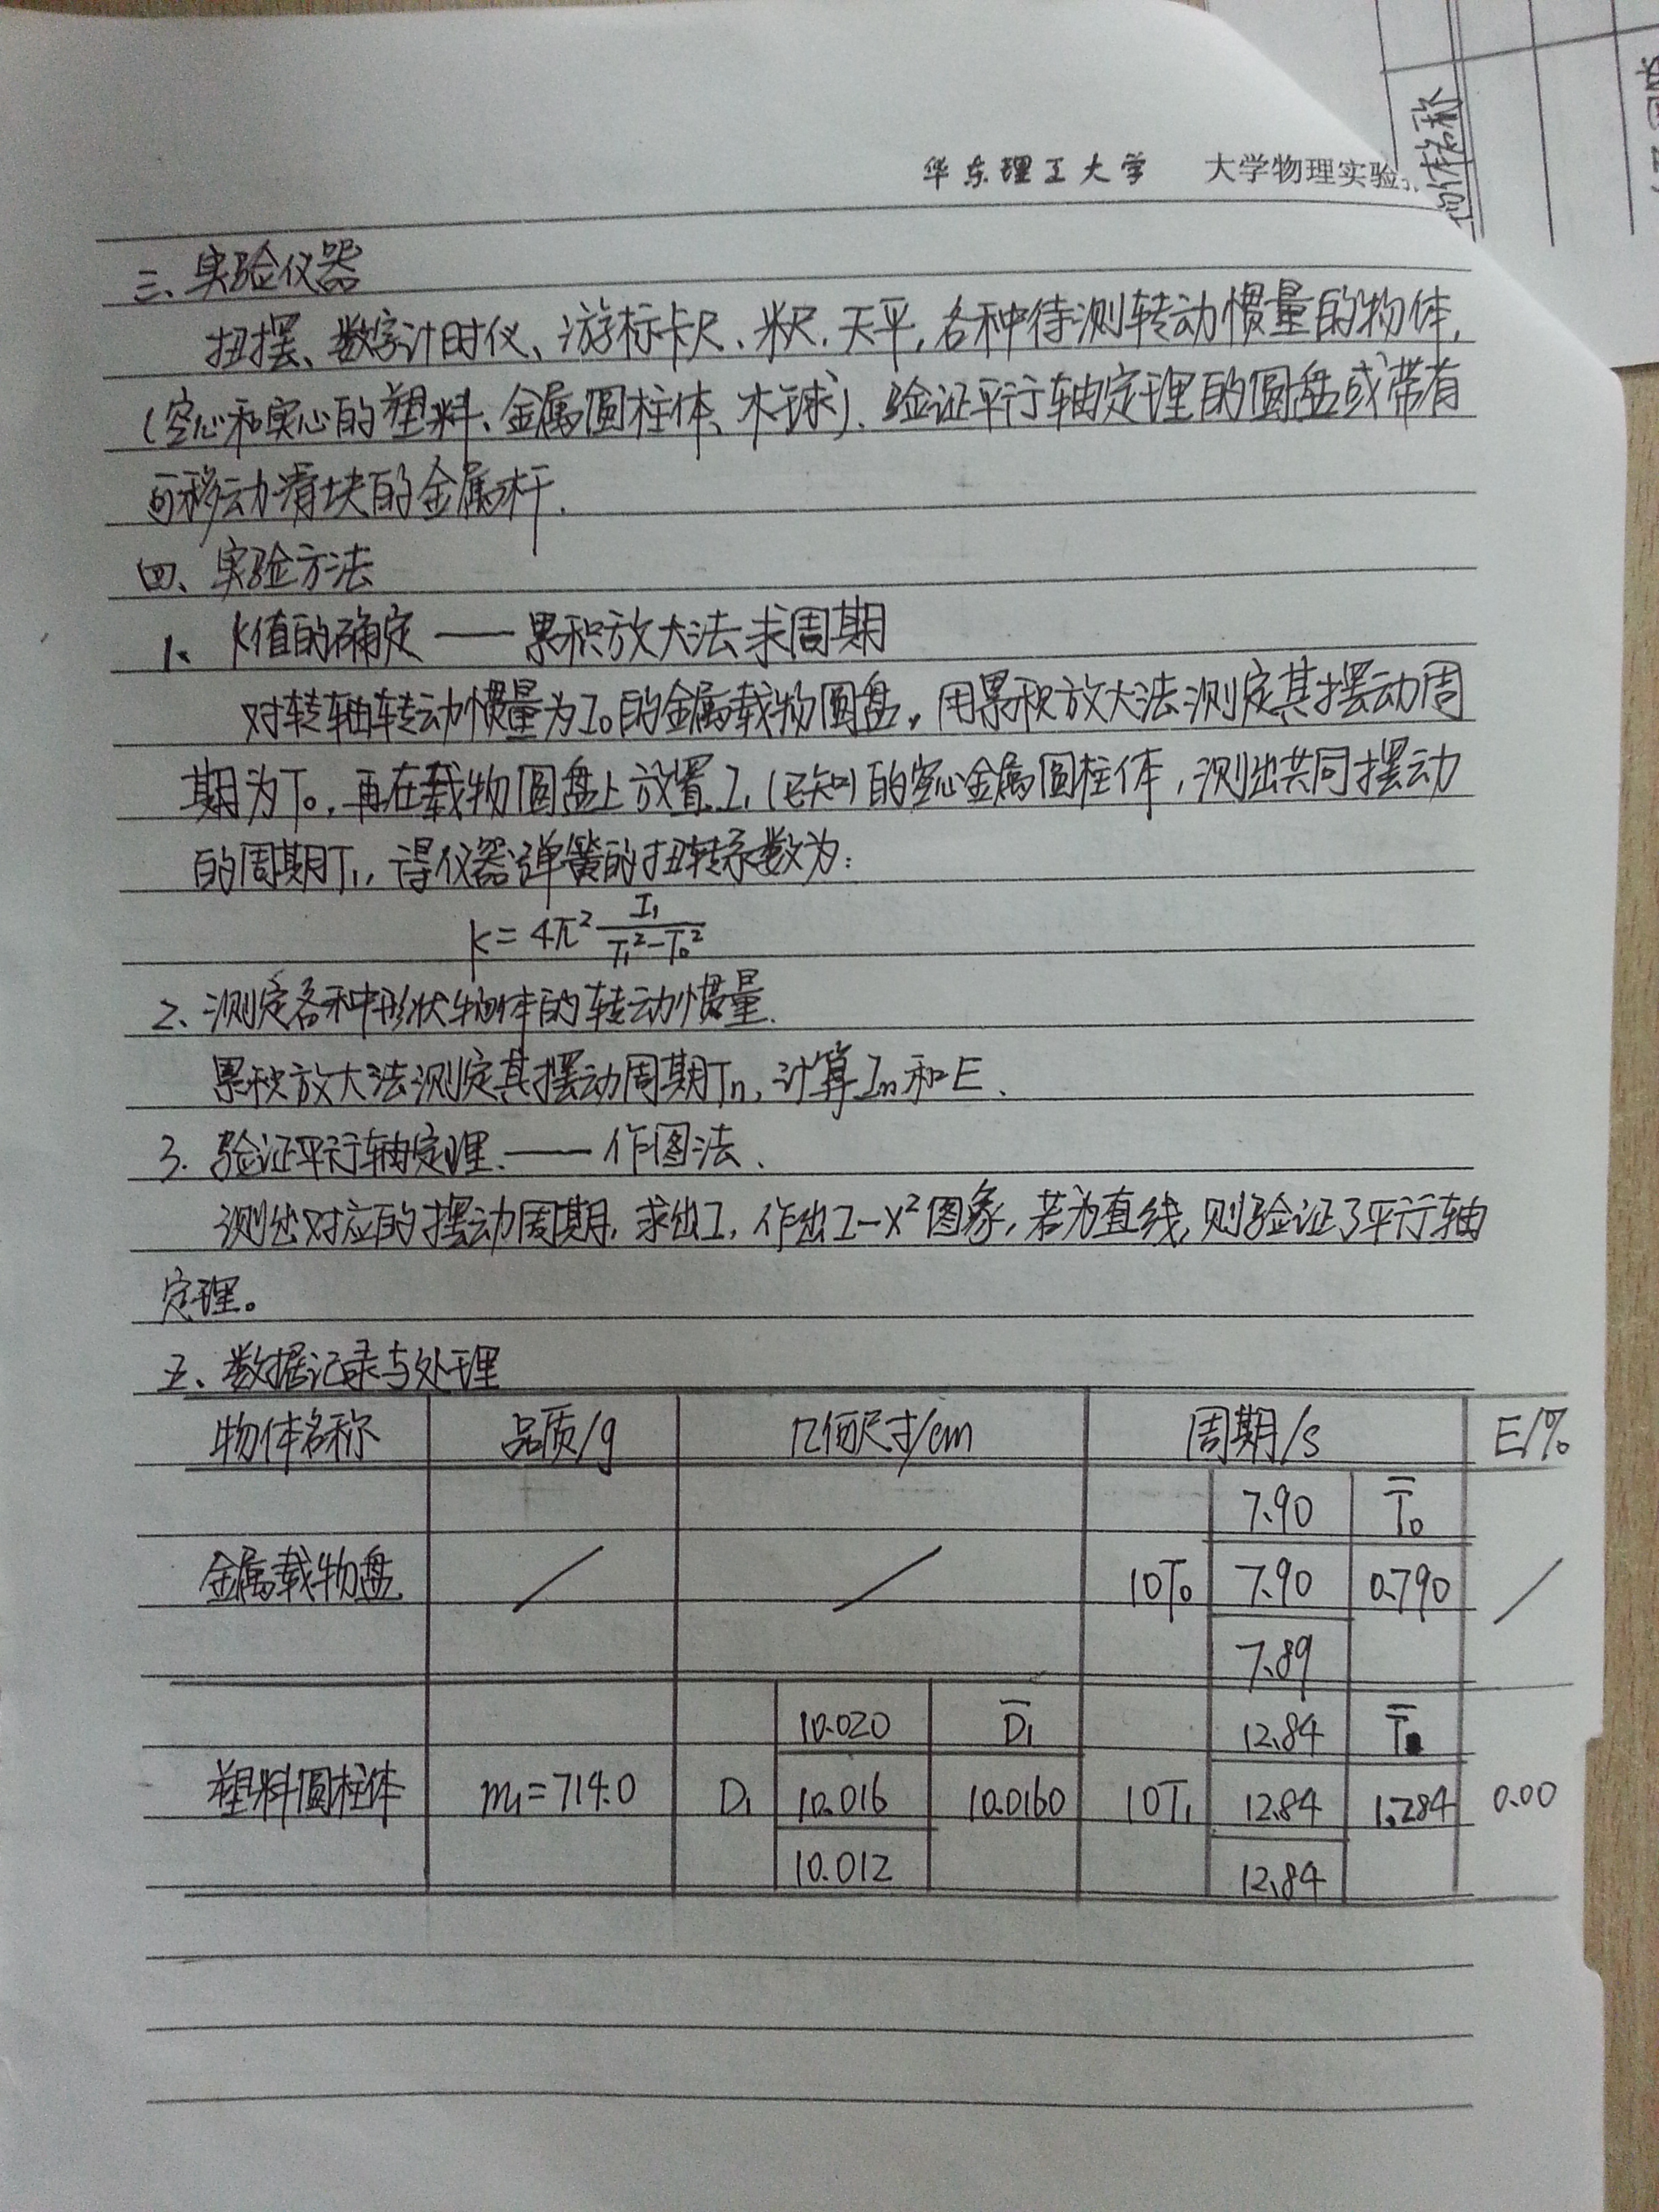 华东理工大学 大学物理实验
物体名称
三、实验仪器
扭摆、数字计时仪、游标卡尺、米尺、天平,各种待测转动惯量的物体,
(空心和实心的塑料、金属圆柱体、木球)、验证平行轴定理的圆盘或带有
可移动滑块的金属杆.
四、实验方法
1、K值的确定——累积放大法求周期
对转轴转动惯量为I₀的金属载物圆盘,用累积放大法测定其摆动周
期为T₀,再在载物圆盘上放置I₁(已知)的空心金属圆柱体,测出共同摆动
的周期T₁,得仪器弹簧的扭转系数为:
K=4π² I₁/(T₁²-T₀²)
2、测定各种形状物体的转动惯量.
累积放大法测定其摆动周期Tn,计算In和E.
3. 验证平行轴定理.——作图法、
测出对应的摆动周期,求出I,作出I-X²图象,若为直线,则验证了平行轴
定理。
五、数据记录与处理
物体名称 品质/g 几何尺寸/cm 周期/s E/%
7.90 T̄₀
金属载物盘 / / 10T₀ 7.90 0.790 /
7.89
10.020 D̄₁ 12.84 T̄
塑料圆柱体 m₁=714.0 D₁ 10.016 10.0160 10T₁ 12.84 1.284 0.00
10.012 12.84